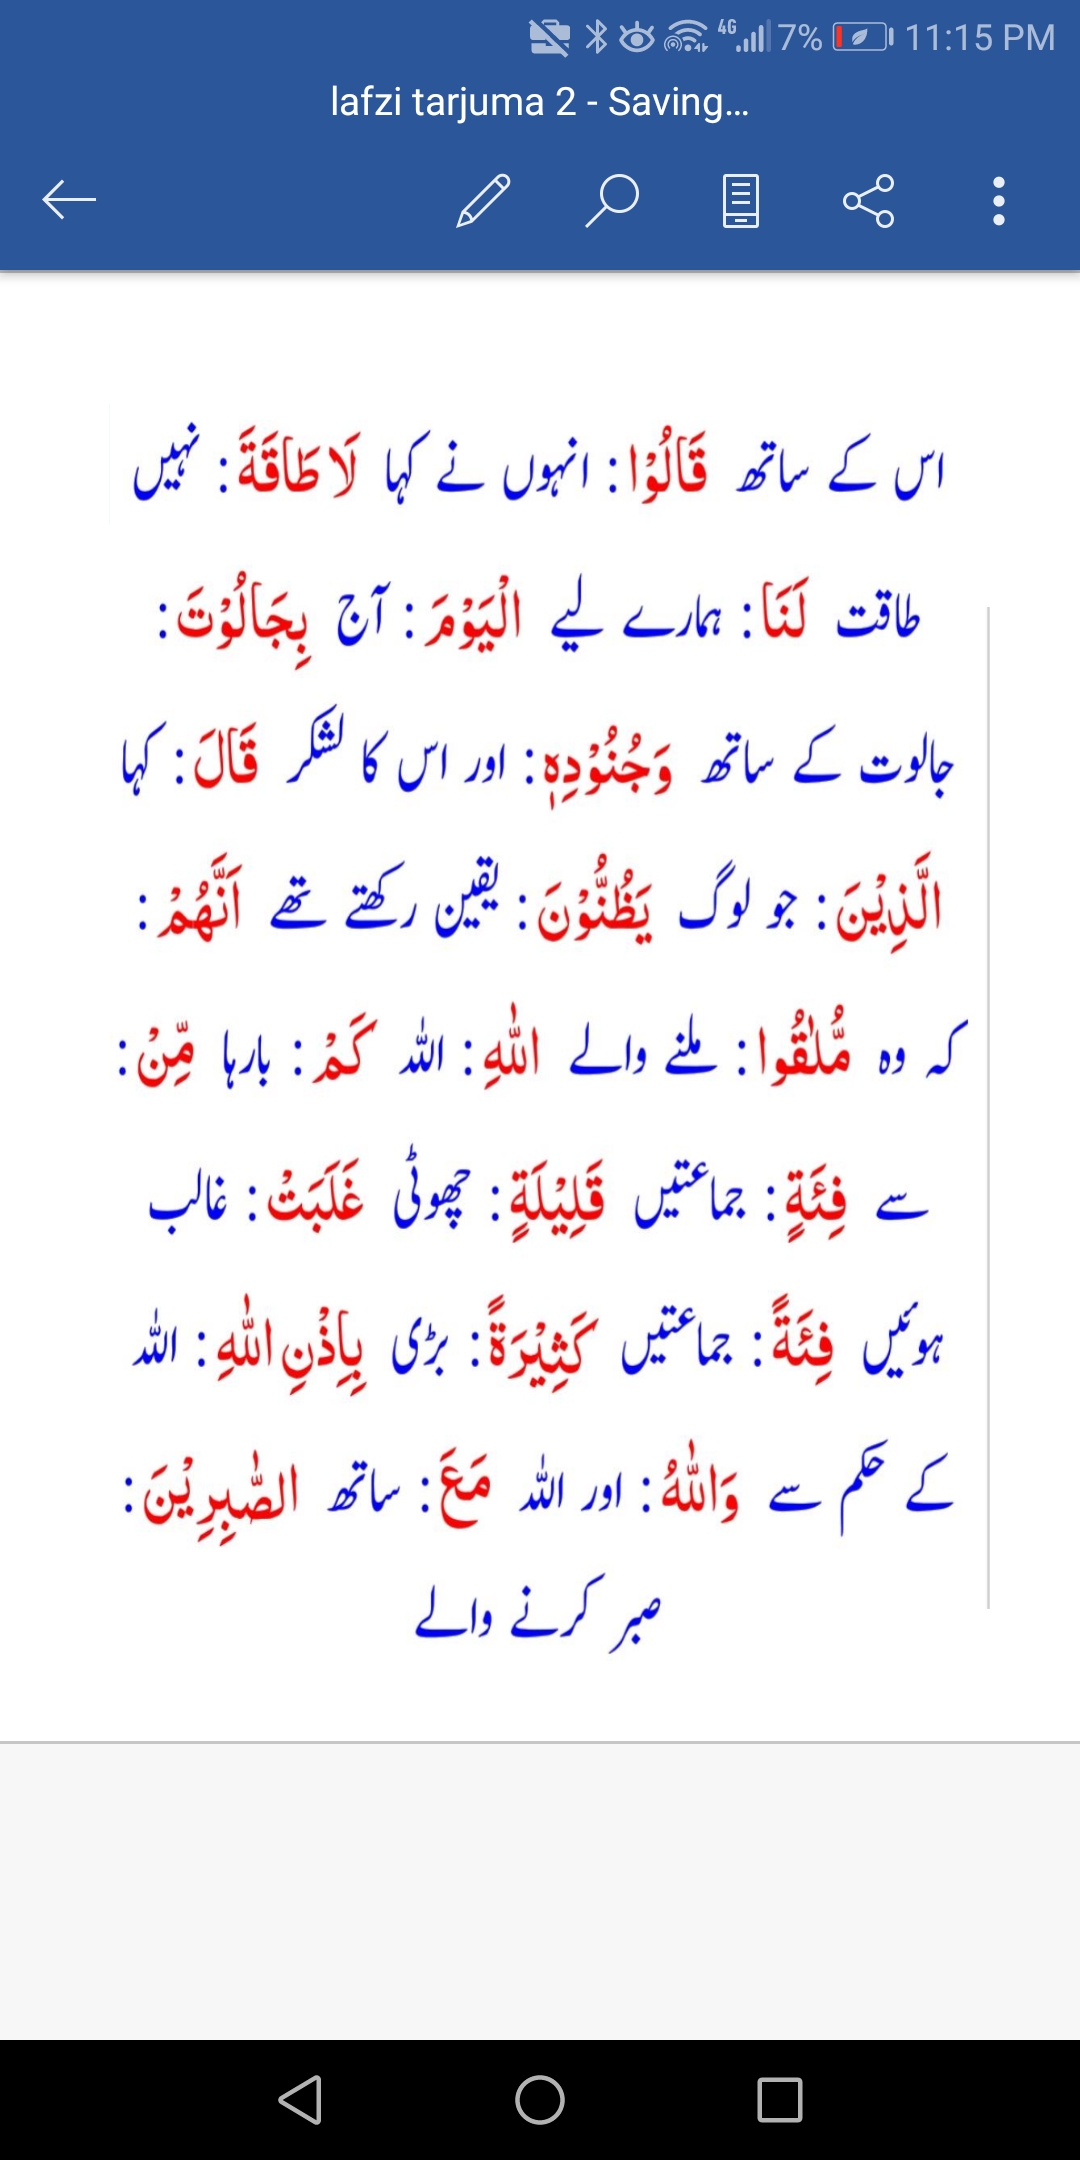 4G 7% 11:15 PM
lafzi tarjuma 2 - Saving...
اس کے ساتھ قَالُوْا: انہوں نے کہا لَا طَاقَةَ: نہیں
طاقت لَنَا: ہمارے لیے الْيَوْمَ: آج بِجَالُوْتَ:
جالوت کے ساتھ وَجُنُوْدِهٖ: اور اس کا لشکر قَالَ: کہا
الَّذِيْنَ: جو لوگ يَظُنُّوْنَ: یقین رکھتے تھے اَنَّهُمْ:
کہ وہ مُّلٰقُوا: ملنے والے اللّٰهِ: اللہ كَمْ: بارہا مِّنْ:
سے فِئَةٍ: جماعتیں قَلِيْلَةٍ: چھوٹی غَلَبَتْ: غالب
ہوئیں فِئَةً: جماعتیں كَثِيْرَةً: بڑی بِاِذْنِ اللّٰهِ: اللہ
کے حکم سے وَاللّٰهُ: اور اللہ مَعَ: ساتھ الصّٰبِرِيْنَ:
صبر کرنے والے